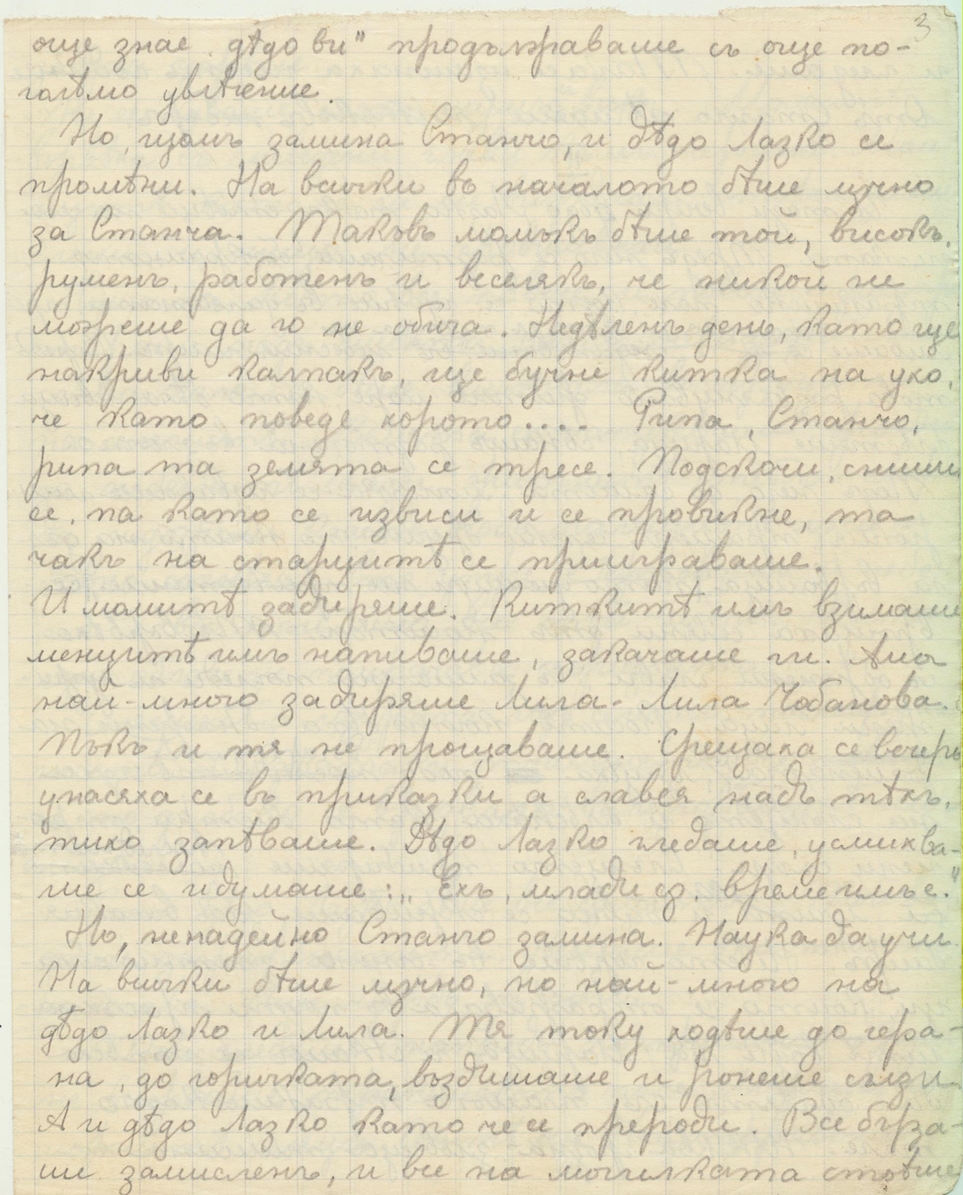 3
още знае дѣдо ви" продължаваше съ още по-
голѣмо увлѣчение.
Но, щомъ замина Станчо, и дѣдо Лазко се
промѣни. На всички въ началото бѣше мѫчно
за Станча. Такъвъ момъкъ бѣше той, високъ,
руменъ, работенъ и веселякъ, че никой не
можеше да го не обича. Недѣленъ день, като ще
накриви калпакъ, ще бучне китка на ухо,
че като поведе хорото.... Рипа, Станчо,
рипа та земята се тресе. Подскочи, сниши
се, па като се извиси и се провикне, та
чакъ на старцитѣ се прииграваше.
И момитѣ задиряше. Киткитѣ имъ взимаше
менцитѣ имъ напиваше, закачаше ги. Ама
най-много задиряше Лила - Лила Чобанова.
Пъкъ и тя не прощаваше. Срещаха се вечерь
унасяха се въ приказки а славея надъ тѣхъ,
тихо запѣваше. Дѣдо Лазко гледаше, усмихва-
ше се и думаше: „Ехъ, млади сѫ, време имъ е."
Но, ненадейно Станчо замина. Наука да учи.
На всички бѣше мѫчно, но най-много на
дѣдо Лазко и Лила. Тя току ходѣше до гера-
на, до горичката, въздишаше и ронеше сълзи.
А и дѣдо Лазко като че се прероди. Все бърза-
ше замисленъ, и все на могилката стоѣше